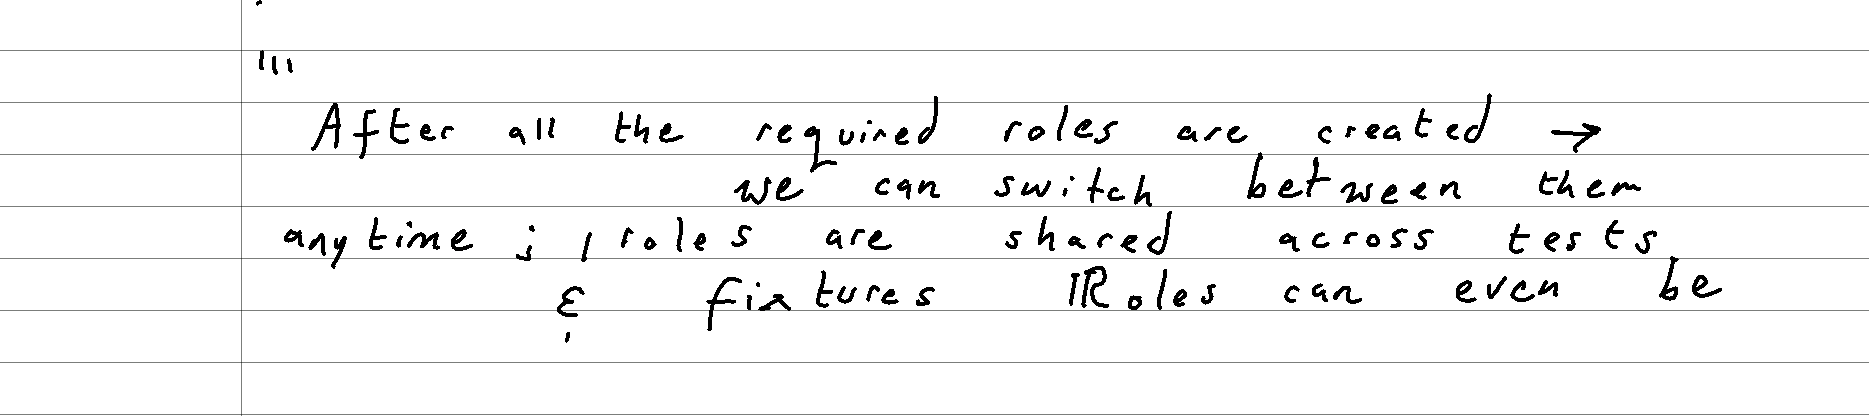 "'
After all the required roles are created →
we can switch between them
anytime ; , roles are shared across tests
& fixtures Roles can even be